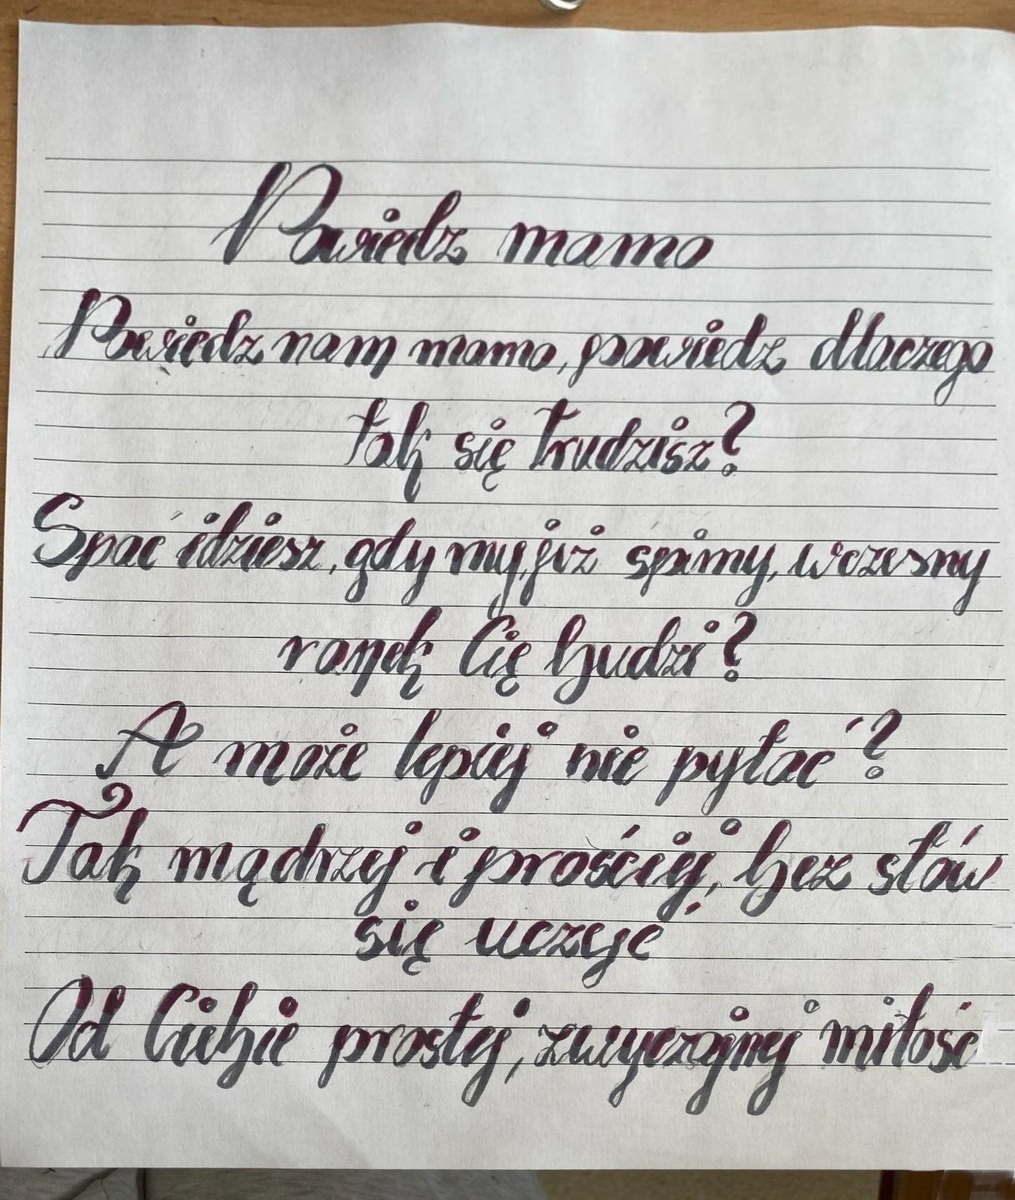 Powiedz mamo
Powiedz nam mamo, powiedz dlaczego
tak się trudzisz?
Spać idziesz, gdy my już śpimy, wczesny
ranek Cię budzi?
A może lepiej nie pytać?
Tak mądrzej i prościej, bez słów
się uczyć
Od Ciebie prostej, zwyczajnej miłośc